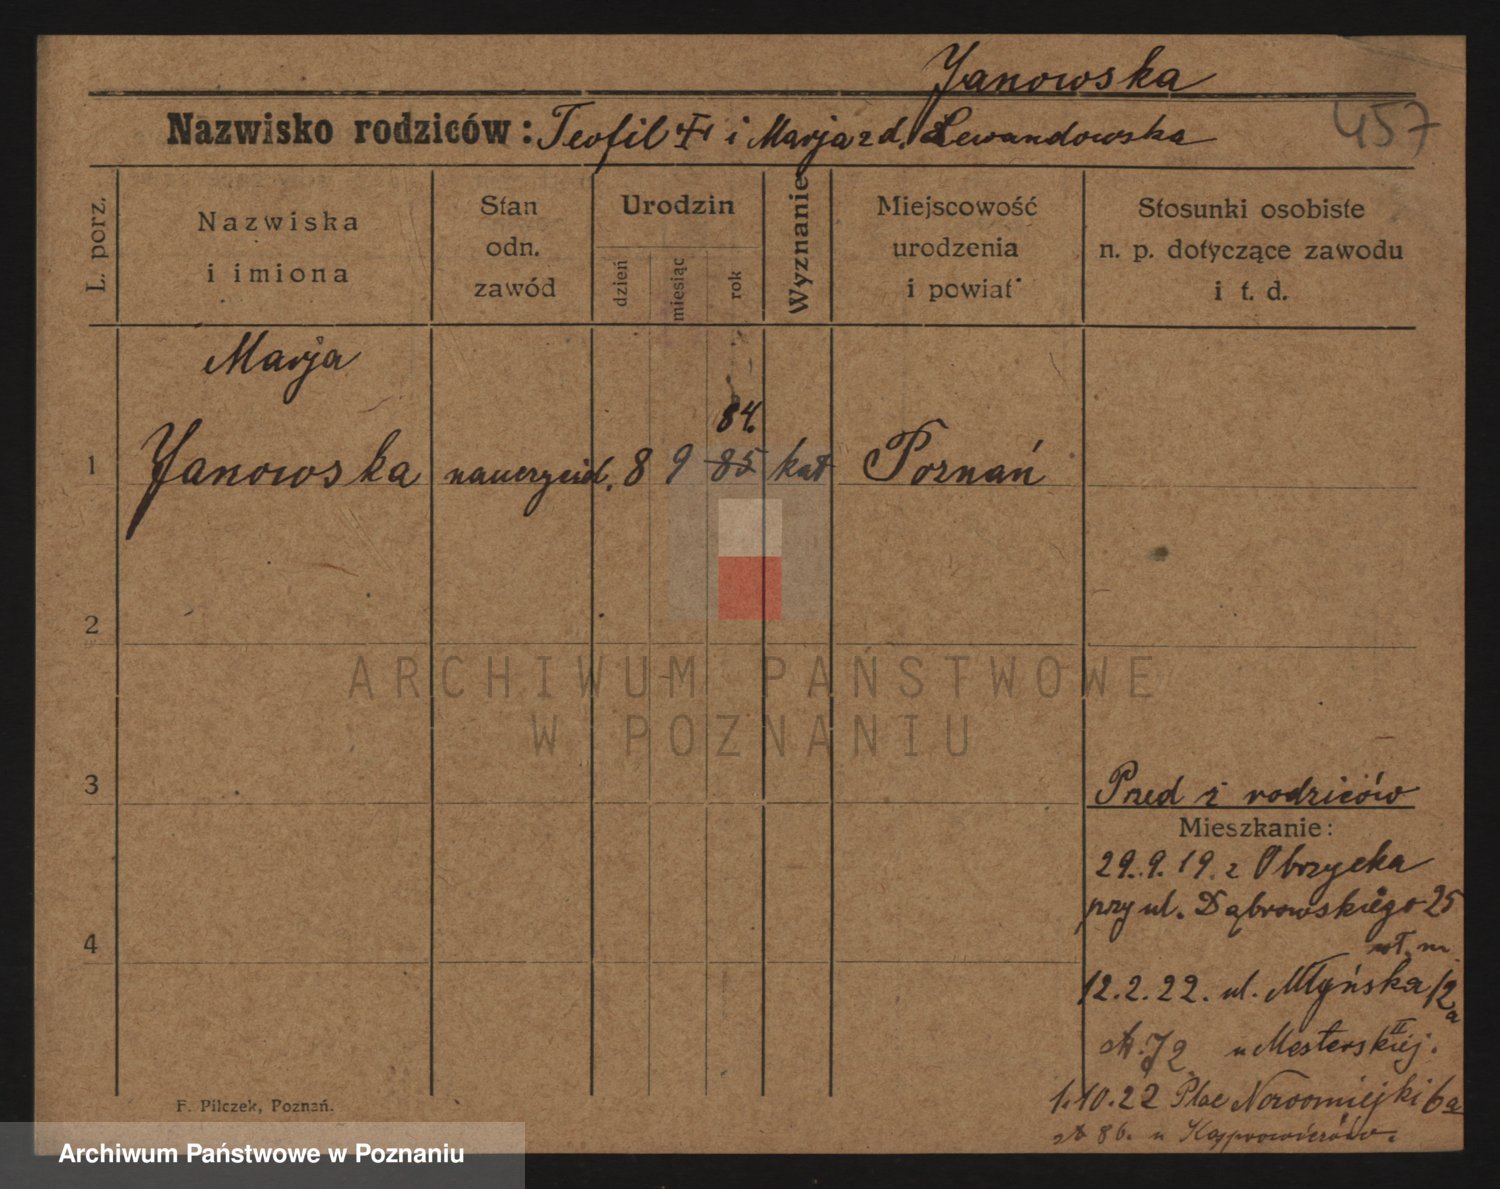 Janowska
457
Nazwisko rodziców: Teofil i Marja z d. Lewandowska
L. porz.
Nazwiska
i imiona
Stan
odn.
zawód
Urodzin
dzień
miesiąc
rok
Wyznanie
Miejscowość
urodzenia
i powiat
Stosunki osobiste
n. p. dotyczące zawodu
i t. d.
Marja
84.
1 Janowska nauczyciel. 8 9 85 kat Poznań
2
ARCHIWUM PAŃSTWOWE
W POZNANIU
3
Przed z rodziców
Mieszkanie:
29.9.19. z Obrzycka
przy ul. Dąbrowskiego 25
4
12.2.22. ul. Młyńska 12a
II
u Mesterskiej.
1.10.22 Plac Nowomiejski 6a
u Kasprowiczów.
F. Pilczek, Poznań.
Archiwum Państwowe w Poznaniu